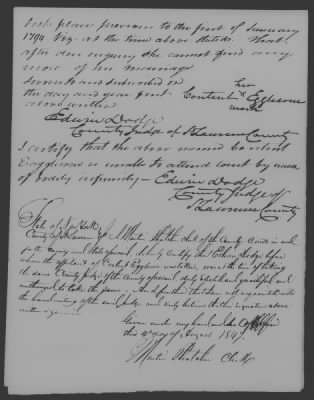 took place previous to the first of January
1794 viz at the time above stated. That
after due enquiry she cannot find any
more of her marriage
Sworn to and subscribed on
the day and year first
above written
her
Content x Eggleson
mark
Edwin Dodge
County Judge of St Lawrence County
I certify that the above named Content
Eaggleson is unable to attend court by reason
of bodily infirmity — Edwin Dodge
County Judge of
St Lawrence County
State of New York
County of St Lawrence I Martin Thatcher clerk of the County Courts in and
for the County and State aforesaid do hereby certify that Edwin Dodge before
whom the affidavit of Content Eggleson was taken, was at the time of taking
the same County Judge of the County aforesaid duly elected and qualified and
authorized to take the same — And further that I am well acquainted with
the hand writing of the said Judge and truly believe that the signature above
written is
Given under my hand and seal of Office
this 4th day of August 1849
Martin Thatcher Clerk